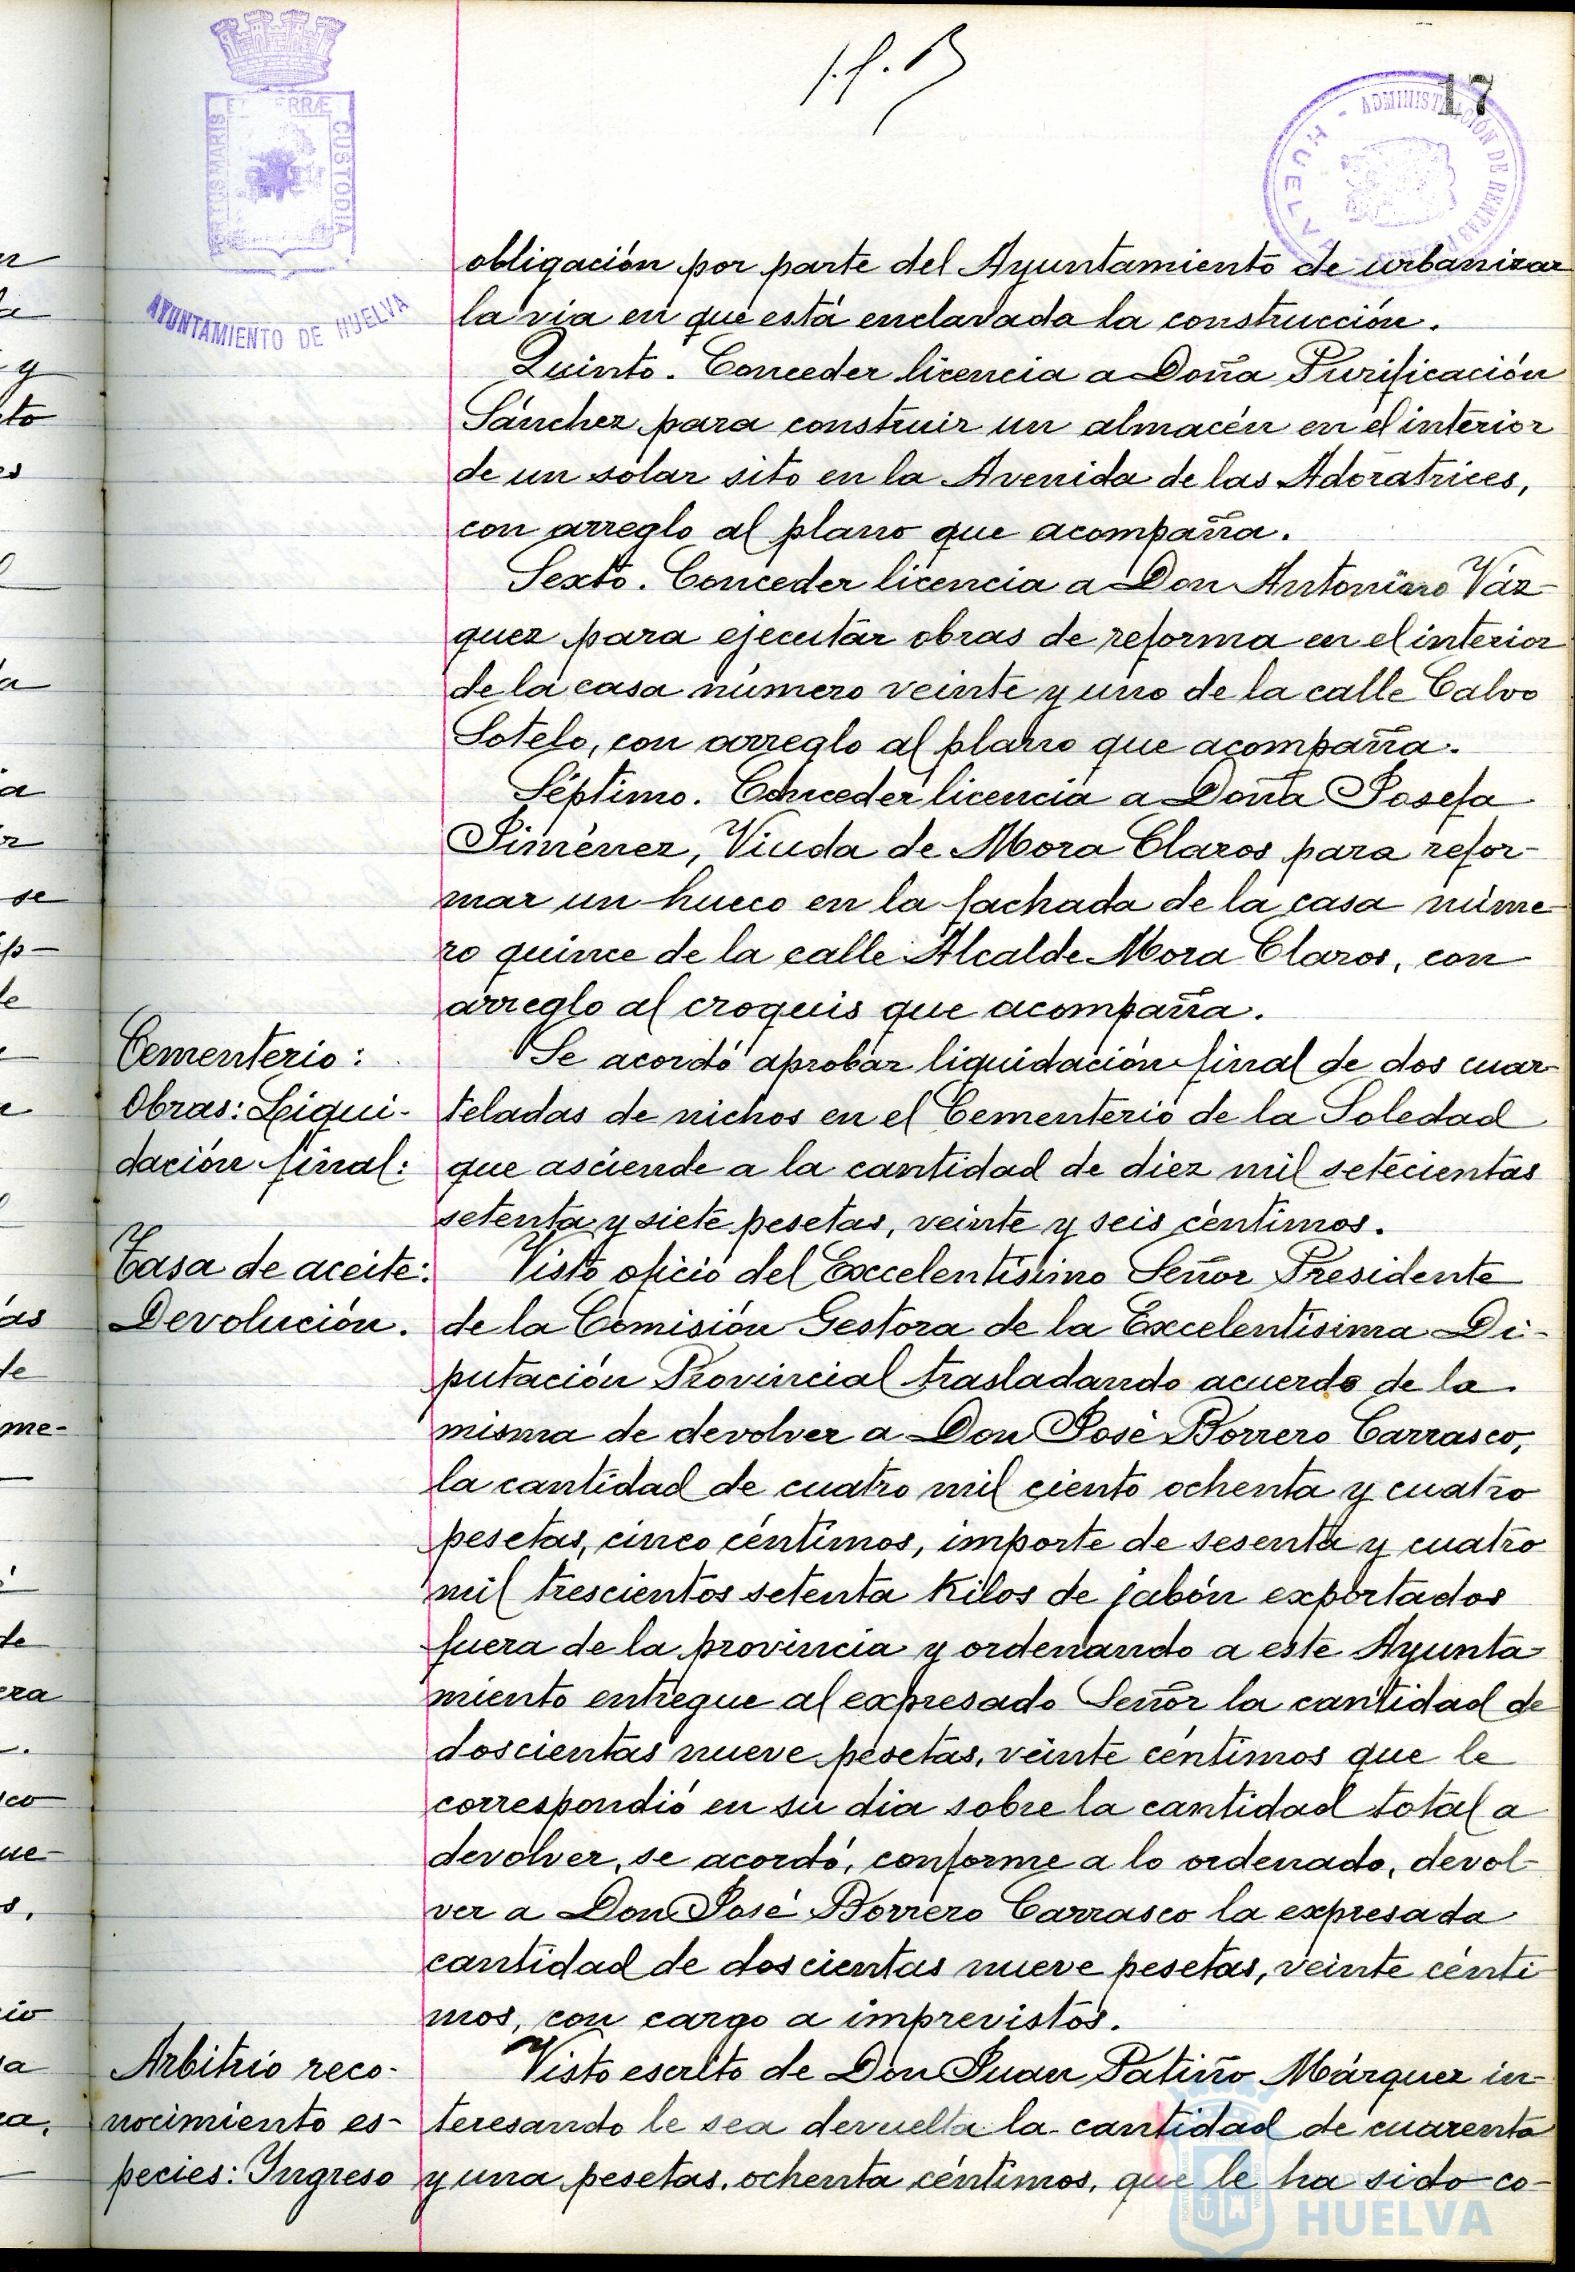 17
PORTUS MARIS ET TERRÆ CUSTODIA
AYUNTAMIENTO DE HUELVA
ADMINISTRACIÓN DE RENTAS
HUELVA
obligación por parte del Ayuntamiento de urbanizar
la via en que está enclavada la construcción.
Quinto. Conceder licencia a Doña Purificación
Sánchez para construir un almacén en el interior
de un solar sito en la Avenida de las Adoratrices,
con arreglo al plano que acompaña.
Sexto. Conceder licencia a Don Antoniano Váz-
quez para ejecutar obras de reforma en el interior
de la casa número veinte y uno de la calle Calvo
Sotelo, con arreglo al plano que acompaña.
Séptimo. Conceder licencia a Doña Josefa
Jiménez, Viuda de Mora Claros para refor-
mar un hueco en la fachada de la casa núme-
ro quince de la calle Alcalde Mora Claros, con
arreglo al croquis que acompaña.
Cementerio:
Obras: Liqui-
dación final:
Se acordó aprobar liquidación final de dos cuar-
teladas de nichos en el Cementerio de la Soledad
que asciende a la cantidad de diez mil setecientas
setenta y siete pesetas, veinte y seis céntimos.
Tasa de aceite:
Devolución.
Visto oficio del Excelentísimo Señor Presidente
de la Comisión Gestora de la Excelentísima Di-
putación Provincial trasladando acuerdo de la
misma de devolver a Don José Borrero Carrasco,
la cantidad de cuatro mil ciento ochenta y cuatro
pesetas, cinco céntimos, importe de sesenta y cuatro
mil trescientos setenta Kilos de jabón exportados
fuera de la provincia y ordenando a este Ayunta-
miento entregue al expresado Señor la cantidad de
doscientas nueve pesetas, veinte céntimos que le
correspondió en su dia sobre la cantidad total a
devolver, se acordó, conforme a lo ordenado, devol-
ver a Don José Borrero Carrasco la expresada
cantidad de doscientas nueve pesetas, veinte cénti-
mos, con cargo a imprevistos.
Arbitrio reco-
nocimiento es-
pecies: Ingreso
Visto escrito de Don Juan Patiño Márquez in-
teresando le sea devuelta la cantidad de cuarenta
y una pesetas, ochenta céntimos, que le ha sido co-
HUELVA